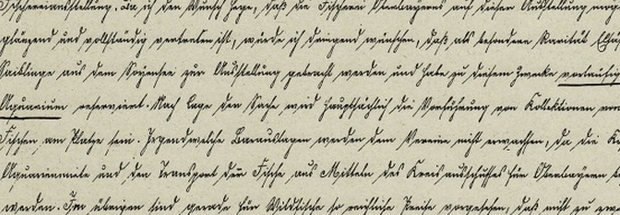 Fischereiausstellung. Da ich den Wunsch hege, daß die Fischerei Oberbayerns auf dieser Ausstellung mög
glänzend und vollständig vertreten ist, würde ich dringend wünschen, daß als besondere Rarität
Saiblinge aus dem zur Ausstellung gebracht werden und habe zu diesem Zwecke vorläufig
Aquarium reserviert. Nach Lage der Sache wird hauptsächlich die Vorführung von Kollektionen von
Fischen am Platze sein. Irgendwelche Barauslagen werden dem Vereine nicht erwachsen, da die Ko
Aquarienmiete und den Transport der Fische aus Mitteln des Kreisausschusses für Oberbayern be
werden. Im übrigen sind gerade für Wildfische so reichliche Preise vorgesehen, daß nicht zu erw